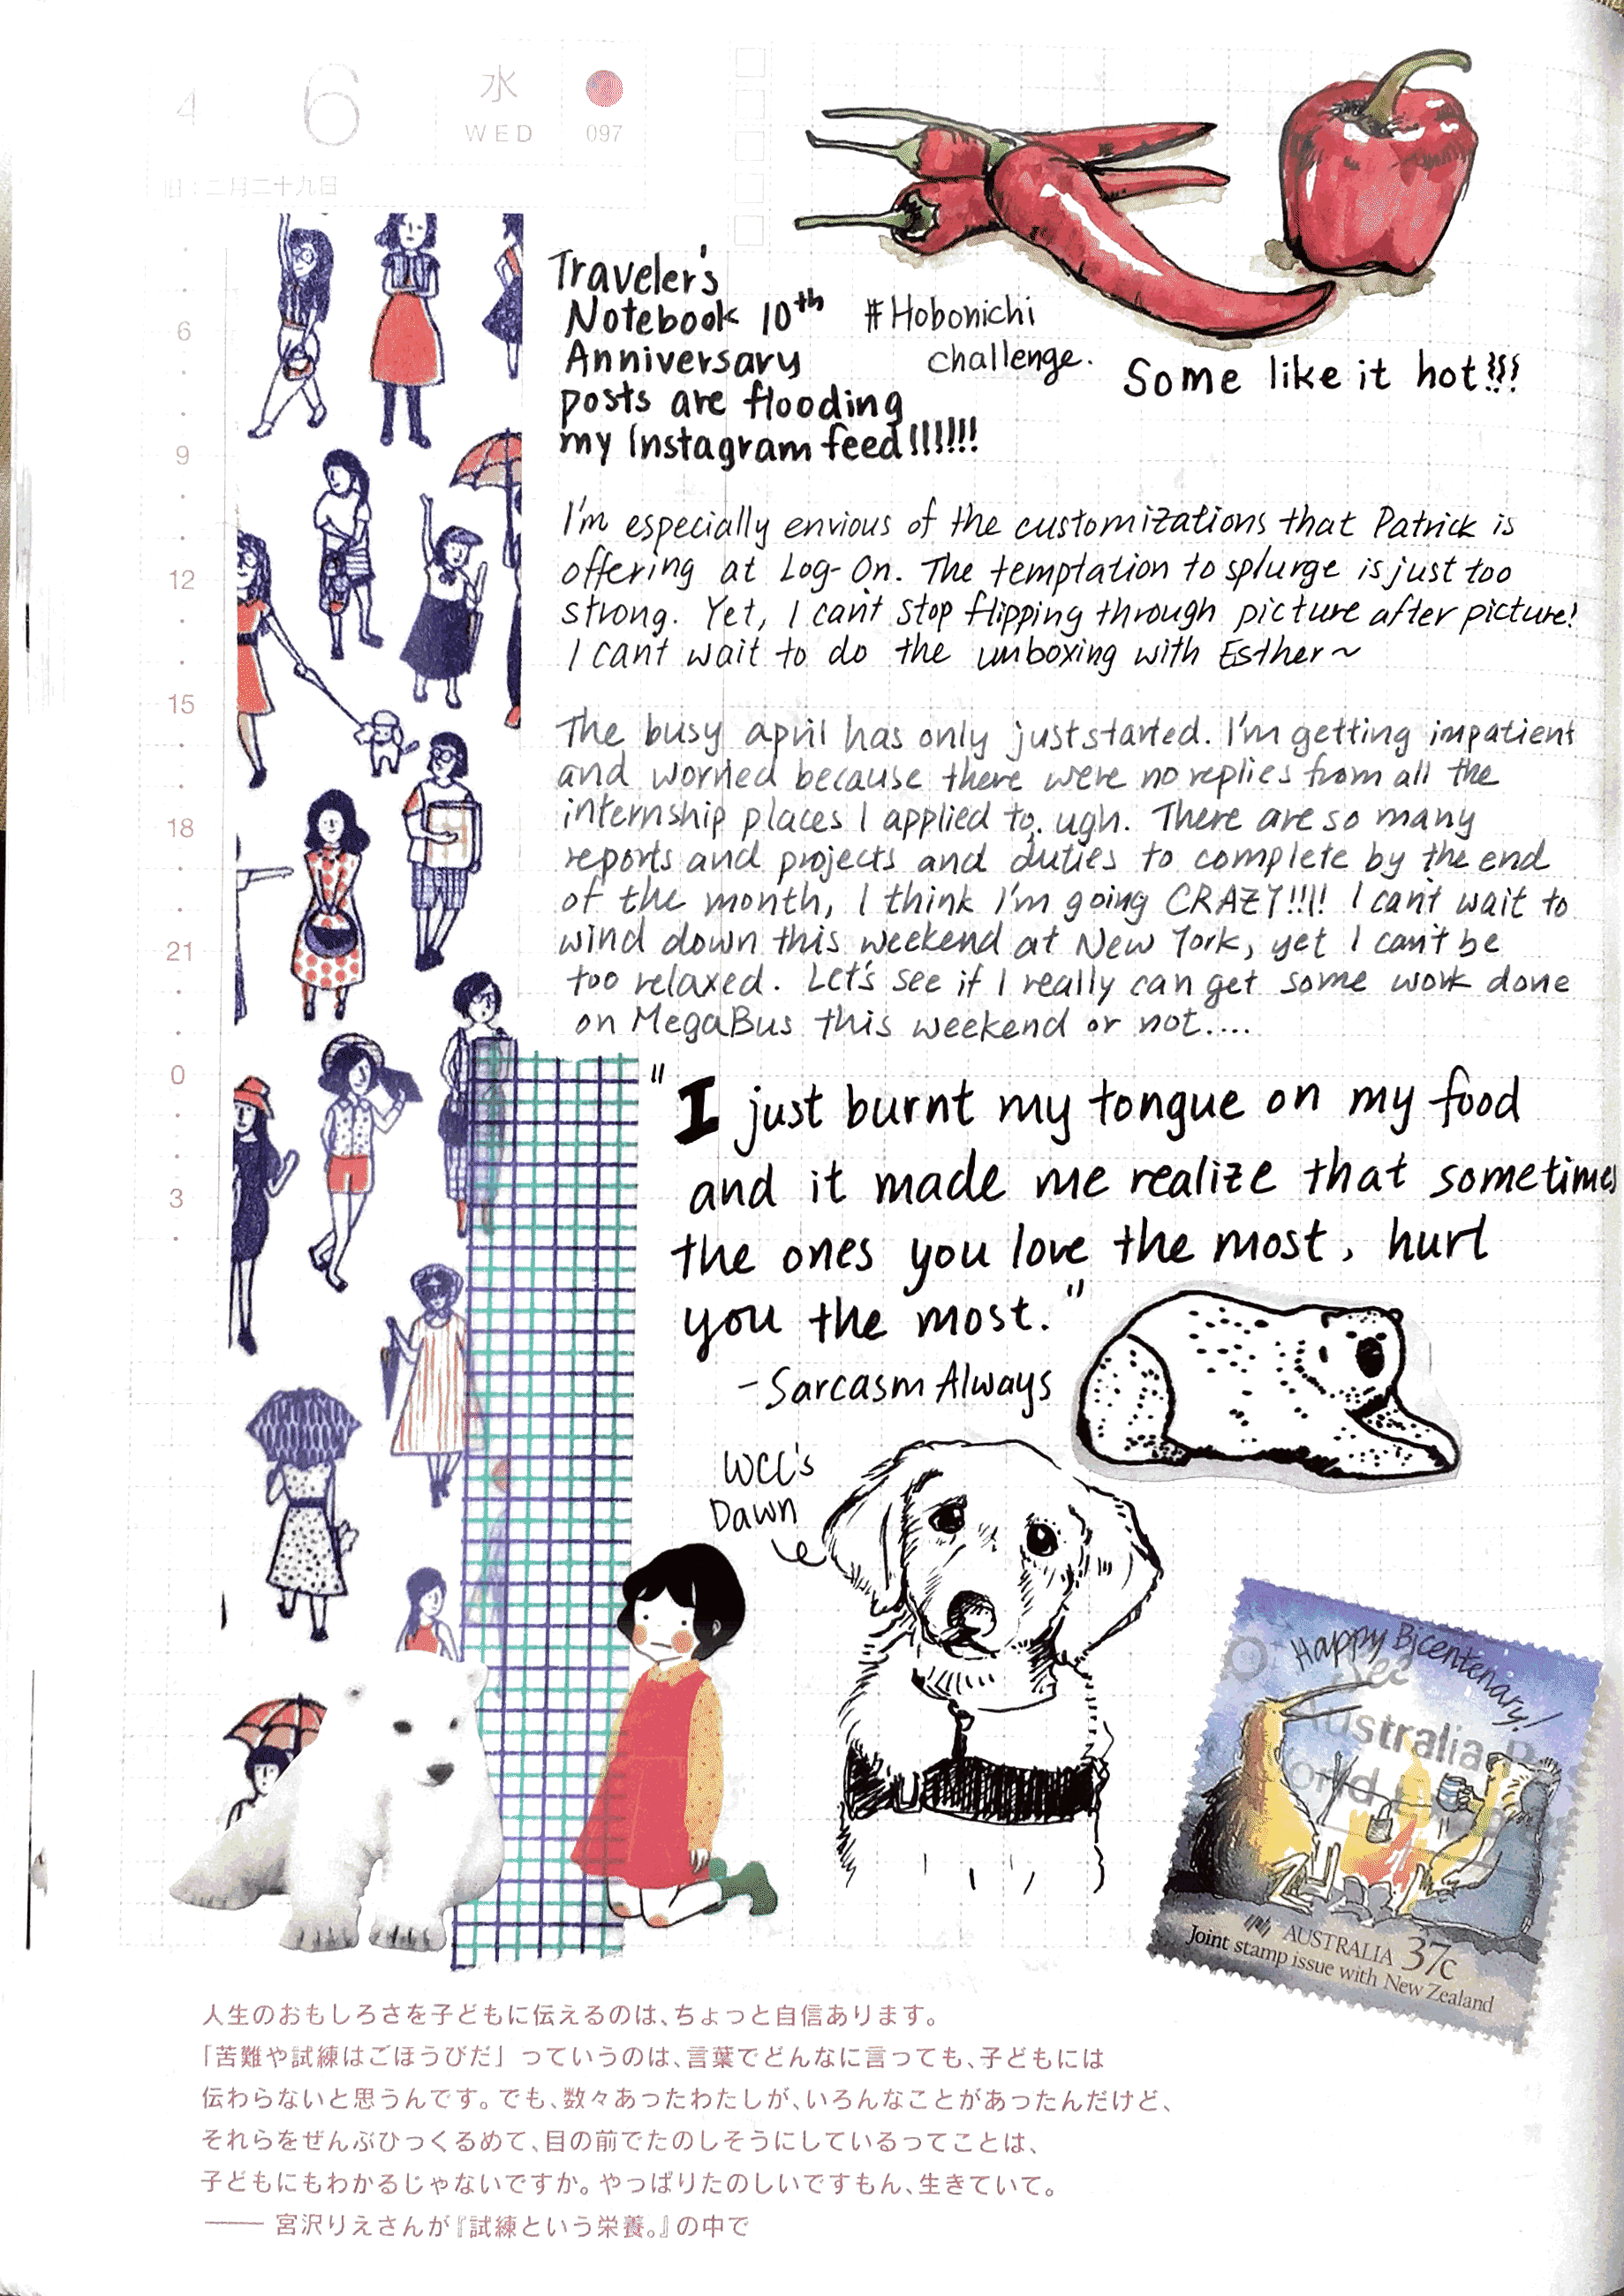 4 6 水 WED 097
旧:二月二十九日
6
9
12
15
18
21
0
3
Traveler's
Notebook 10th
Anniversary
posts are flooding
my Instagram feed!!!!!!
#Hobonichi
challenge.
Some like it hot!!!
I'm especially envious of the customizations that Patrick is
offering at Log-On. The temptation to splurge is just too
strong. Yet, I can't stop flipping through picture after picture!
I can't wait to do the unboxing with Esther~
The busy april has only just started. I'm getting impatient
and worried because there were no replies from all the
internship places I applied to. ugh. There are so many
reports and projects and duties to complete by the end
of the month, I think I'm going CRAZY!!!! I can't wait to
wind down this weekend at New York, yet I can't be
too relaxed. Let's see if I really can get some work done
on MegaBus this weekend or not....
"I just burnt my tongue on my food
and it made me realize that sometimes
the ones you love the most, hurt
you the most."
-Sarcasm Always
WCC's
Dawn
Happy Bicentenary!
Australia
World
AUSTRALIA 37c
Joint stamp issue with New Zealand
人生のおもしろさを子どもに伝えるのは、ちょっと自信あります。
「苦難や試練はごほうびだ」っていうのは、言葉でどんなに言っても、子どもには
伝わらないと思うんです。でも、数々あったわたしが、いろんなことがあったんだけど、
それらをぜんぶひっくるめて、目の前でたのしそうにしているってことは、
子どもにもわかるじゃないですか。やっぱりたのしいですもん、生きていて。
—— 宮沢りえさんが『試練という栄養。』の中で